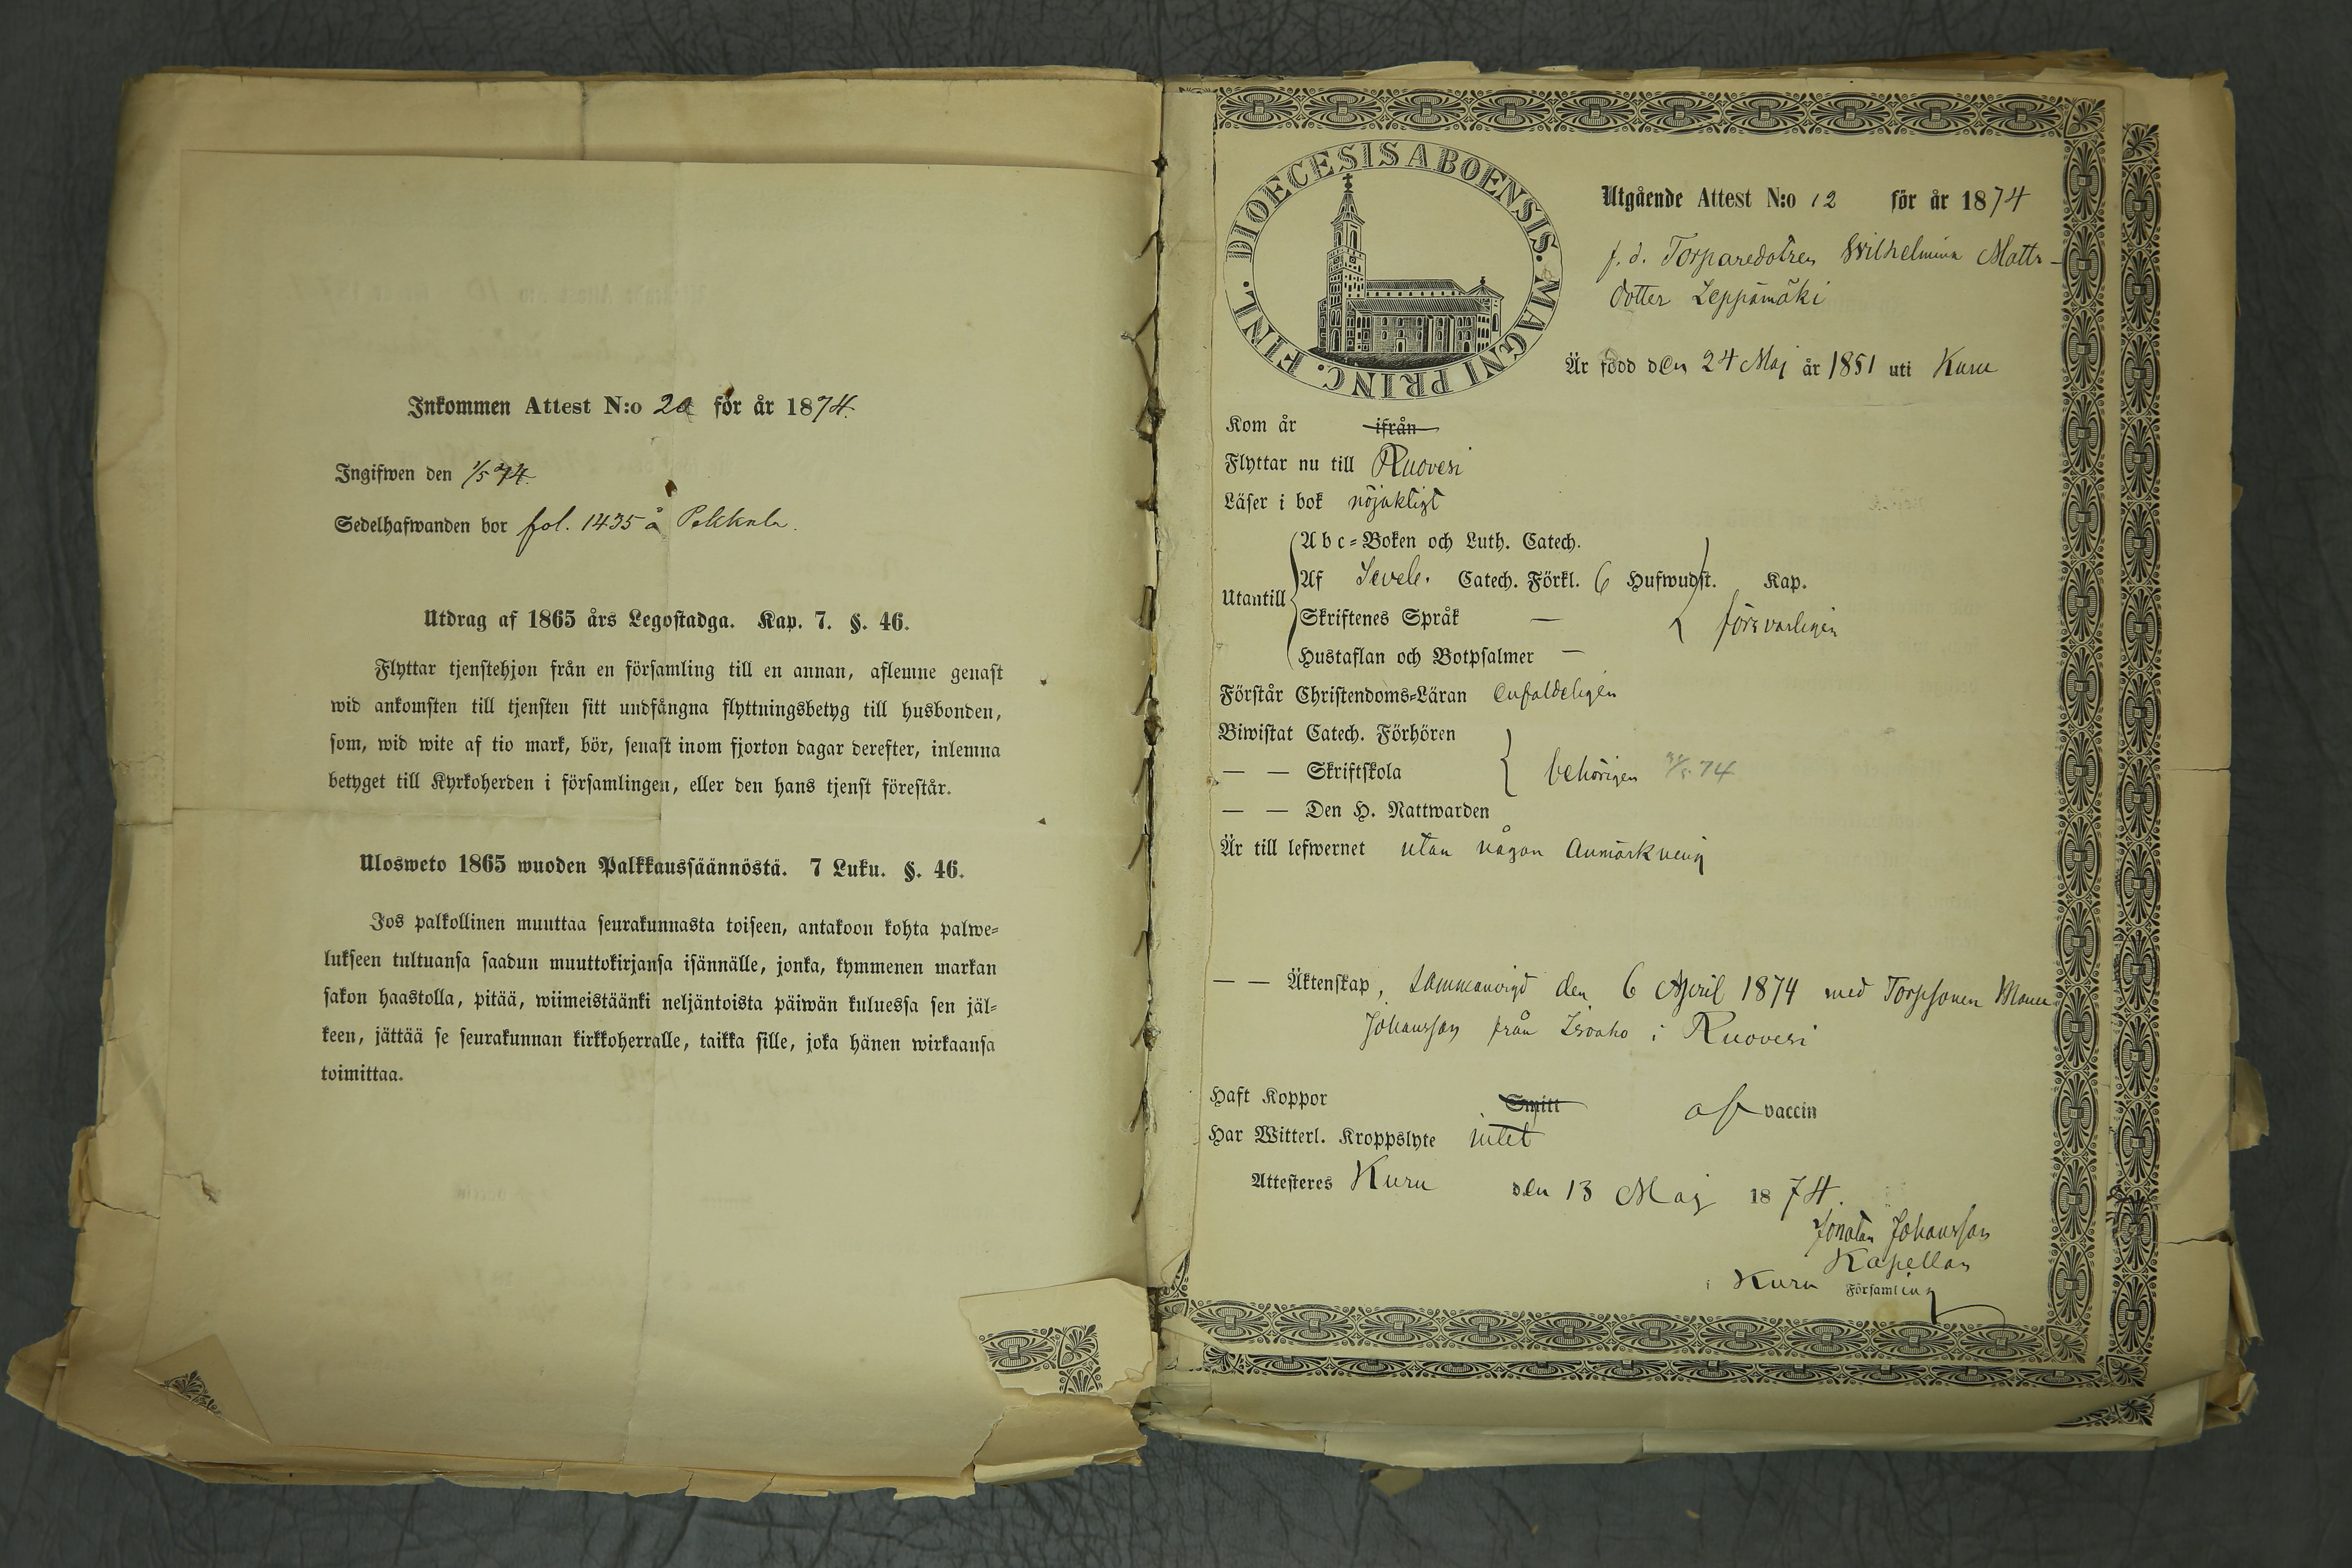 Inkommen Attest N:o 20 för år 1874.
Ingifwen den 1/5 74.
Sedelhafwanden bor fol. 1435 å Pekkala.
Utdrag af 1865 års Legostadga. Kap. 7. §. 46.
Flyttar tjenstehjon från en församling till en annan, aflemne genast
wid ankomsten till tjensten sitt undfångna flyttningsbetyg till husbonden,
som, wid wite af tio mark, bör, senast inom fjorton dagar derefter, inlemna
betyget till Kyrkoherden i församlingen, eller den hans tjenst förestår.
Ulosweto 1865 wuoden Palkkaussäännöstä. 7 Luku. §. 46.
Jos palkollinen muuttaa seurakunnasta toiseen, antakoon kohta palwe-
lukseen tultuansa saadun muuttokirjansa isännälle, jonka, kymmenen markan
sakon haastolla, pitää, wiimeistäänki neljäntoista päiwän kuluessa sen jäl-
keen, jättää se seurakunnan kirkkoherralle, taikka sille, joka hänen wirkaansa
toimittaa.
DIOECESIS ABOENSIS. MAGNI PRINC. FINL.
Utgående Attest N:o 12 för år 1874
f. d. Torparedotren Wilhelmina Matts-
dotter Leppämäki
Är född den 24 Maj år 1851 uti Kuru
Kom år ifrån
Flyttar nu till Ruovesi
Läser i bok nöjaktigt
Utantill
Abc-Boken och Luth. Catech.
Af Sevel. Catech. Förkl. 6 Hufwudst. Kap.
Skriftenes Språk —
försvarligen
Hustaflan och Botpsalmer —
Förstår Christendoms-Läran enfaldeligen
Biwistat Catech. Förhören
— — Skriftskola
behörigen 74
— — Den H. Nattwarden
Är till lefwernet utan någon anmärkning
— — Äktenskap, sammanvigd den 6 April 1874 med Torpsonen Manu
Johansson från Isoaho i Ruovesi
Haft Koppor Smitt af vaccin
Har Witterl. Kroppslyte intet
Attesteres Kuru den 13 Maj 1874.
Jonatan Johansson
Kapellan
i Kuru Församling